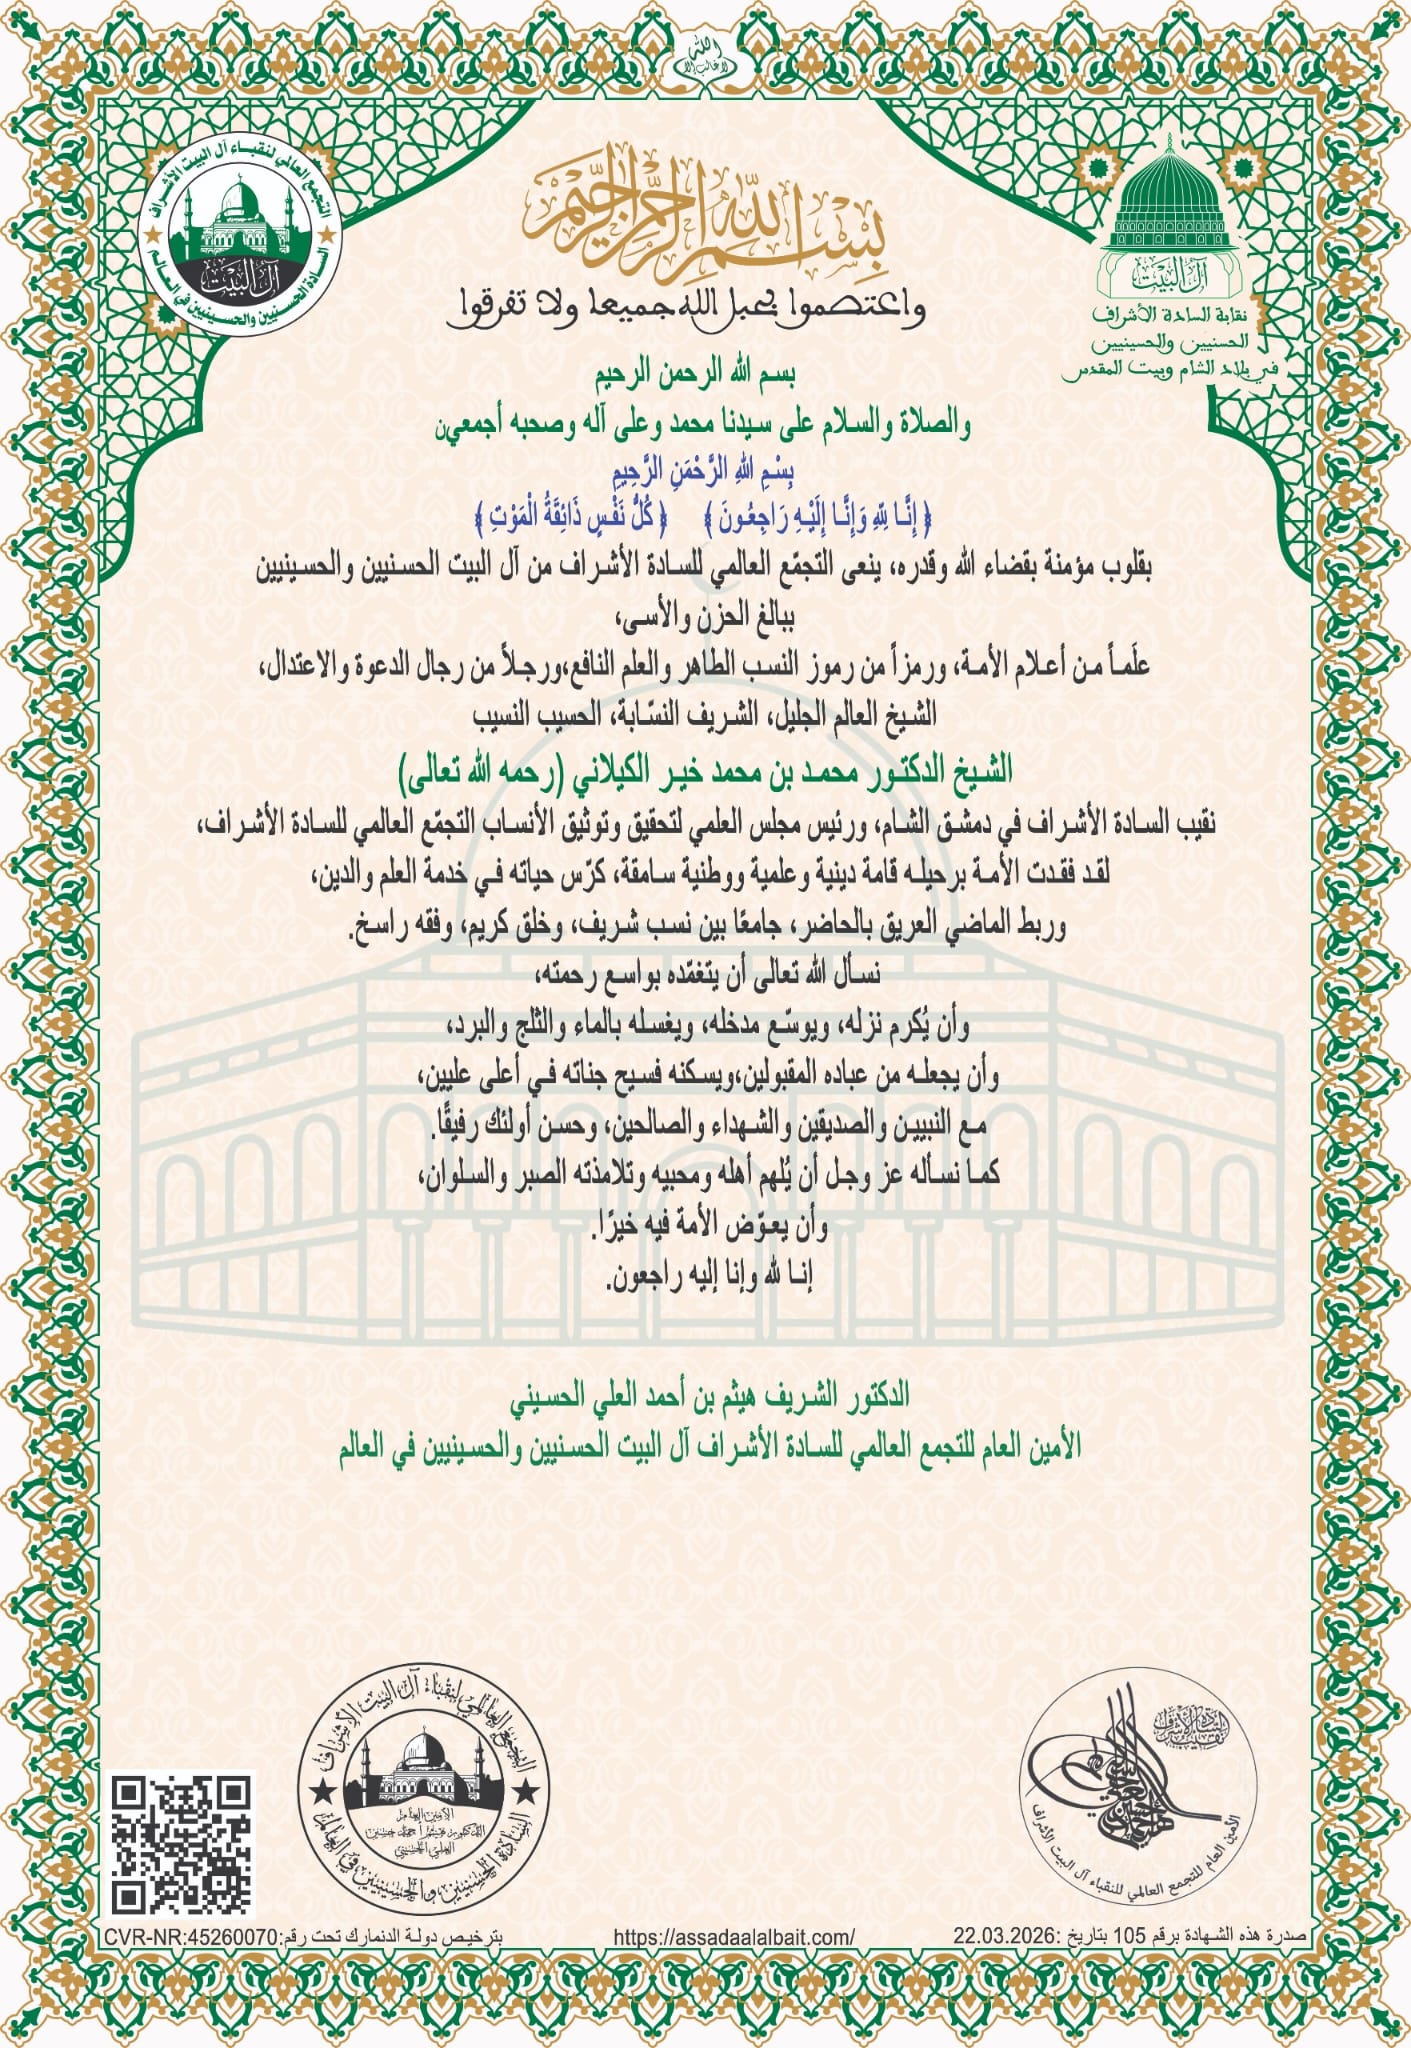 الله
لا غالب إلا
التجمع العالمي لنقباء آل البيت الأشراف
السادة الحسنيين والحسينيين في العالم
آل البيت
بسم الله الرحمن الرحيم
واعتصموا بحبل الله جميعا ولا تفرقوا
آل البيت
نقابة السادة الأشراف
الحسنيين والحسينيين
في بلاد الشام وبيت المقدس
بسم الله الرحمن الرحيم
والصلاة والسلام على سيدنا محمد وعلى آله وصحبه أجمعين
بِسْمِ اللهِ الرَّحْمَنِ الرَّحِيمِ
﴿ إِنَّا لِلَّهِ وَإِنَّا إِلَيْهِ رَاجِعُونَ ﴾ ﴿ كُلُّ نَفْسٍ ذَائِقَةُ الْمَوْتِ ﴾
بقلوب مؤمنة بقضاء الله وقدره، ينعى التجمّع العالمي للسادة الأشراف من آل البيت الحسنيين والحسينيين
ببالغ الحزن والأسى،
علَماً من أعلام الأمة، ورمزاً من رموز النسب الطاهر والعلم النافع،ورجلاً من رجال الدعوة والاعتدال،
الشيخ العالم الجليل، الشريف النسّابة، الحسيب النسيب
الشيخ الدكتور محمد بن محمد خير الكيلاني (رحمه الله تعالى)
نقيب السادة الأشراف في دمشق الشام، ورئيس مجلس العلمي لتحقيق وتوثيق الأنساب التجمّع العالمي للسادة الأشراف،
لقد فقدت الأمة برحيله قامة دينية وعلمية ووطنية سامقة، كرّس حياته في خدمة العلم والدين،
وربط الماضي العريق بالحاضر، جامعًا بين نسب شريف، وخلق كريم، وفقه راسخ.
نسأل الله تعالى أن يتغمّده بواسع رحمته،
وأن يُكرم نزله، ويوسّع مدخله، ويغسله بالماء والثلج والبرد،
وأن يجعله من عباده المقبولين،ويسكنه فسيح جناته في أعلى عليين،
مع النبيين والصديقين والشهداء والصالحين، وحسن أولئك رفيقًا.
كما نسأله عز وجل أن يُلهم أهله ومحبيه وتلامذته الصبر والسلوان،
وأن يعوّض الأمة فيه خيرًا.
إنا لله وإنا إليه راجعون.
الدكتور الشريف هيثم بن أحمد العلي الحسيني
الأمين العام للتجمع العالمي للسادة الأشراف آل البيت الحسنيين والحسينيين في العالم
التجمع العالمي لنقباء آل البيت الأشراف
الأمين العام
العلي الحسيني
السادة الحسنيين والحسينيين في العالم
الأمين العام للتجمع العالمي للنقباء آل البيت الأشراف
صدرة هذه الشهادة برقم 105 بتاريخ :22.03.2026
https://assadaalalbait.com/
بترخيص دولة الدنمارك تحت رقم:CVR-NR:45260070